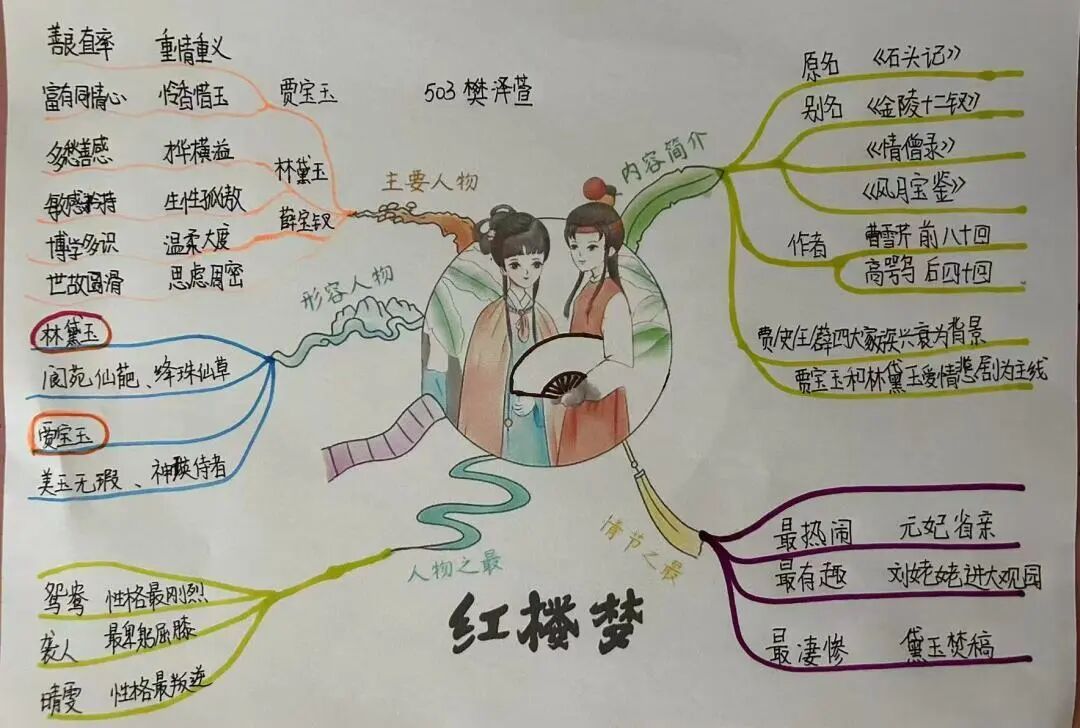 503 樊泽萱
主要人物
贾宝玉
善良直率 重情重义
富有同情心 怜香惜玉
林黛玉
多愁善感 才华横溢
敏感矜持 生性孤傲
薛宝钗
博学多识 温柔大度
世故圆滑 思虑周密
形容人物
林黛玉
阆苑仙葩、绛珠仙草
贾宝玉
美玉无瑕、神瑛侍者
人物之最
鸳鸯 性格最刚烈
袭人 最卑躬屈膝
晴雯 性格最叛逆
内容简介
原名 《石头记》
别名 《金陵十二钗》
《情僧录》
《风月宝鉴》
作者 曹雪芹 前八十回
高鹗 后四十回
贾史王薛四大家族兴衰为背景
贾宝玉和林黛玉爱情悲剧为主线
情节之最
最热闹 元妃省亲
最有趣 刘姥姥进大观园
最凄惨 黛玉焚稿
红楼梦